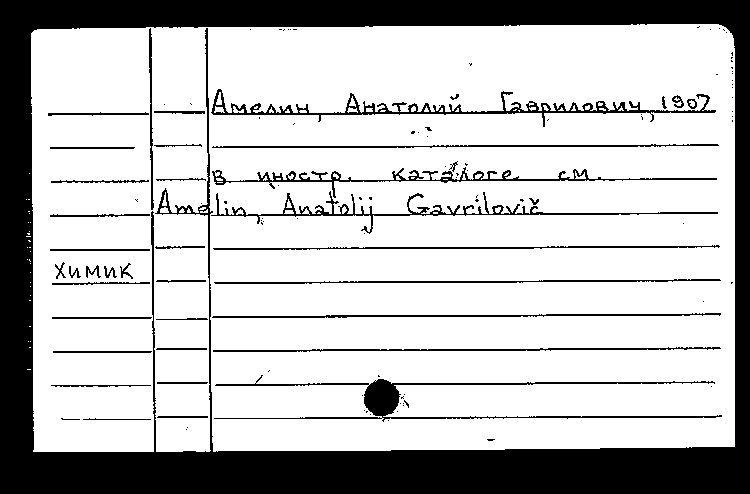 Амелин, Анатолий Гаврилович, 1907
в иностр. каталоге см.
Amelin, Anatolij Gavrilovič
химик